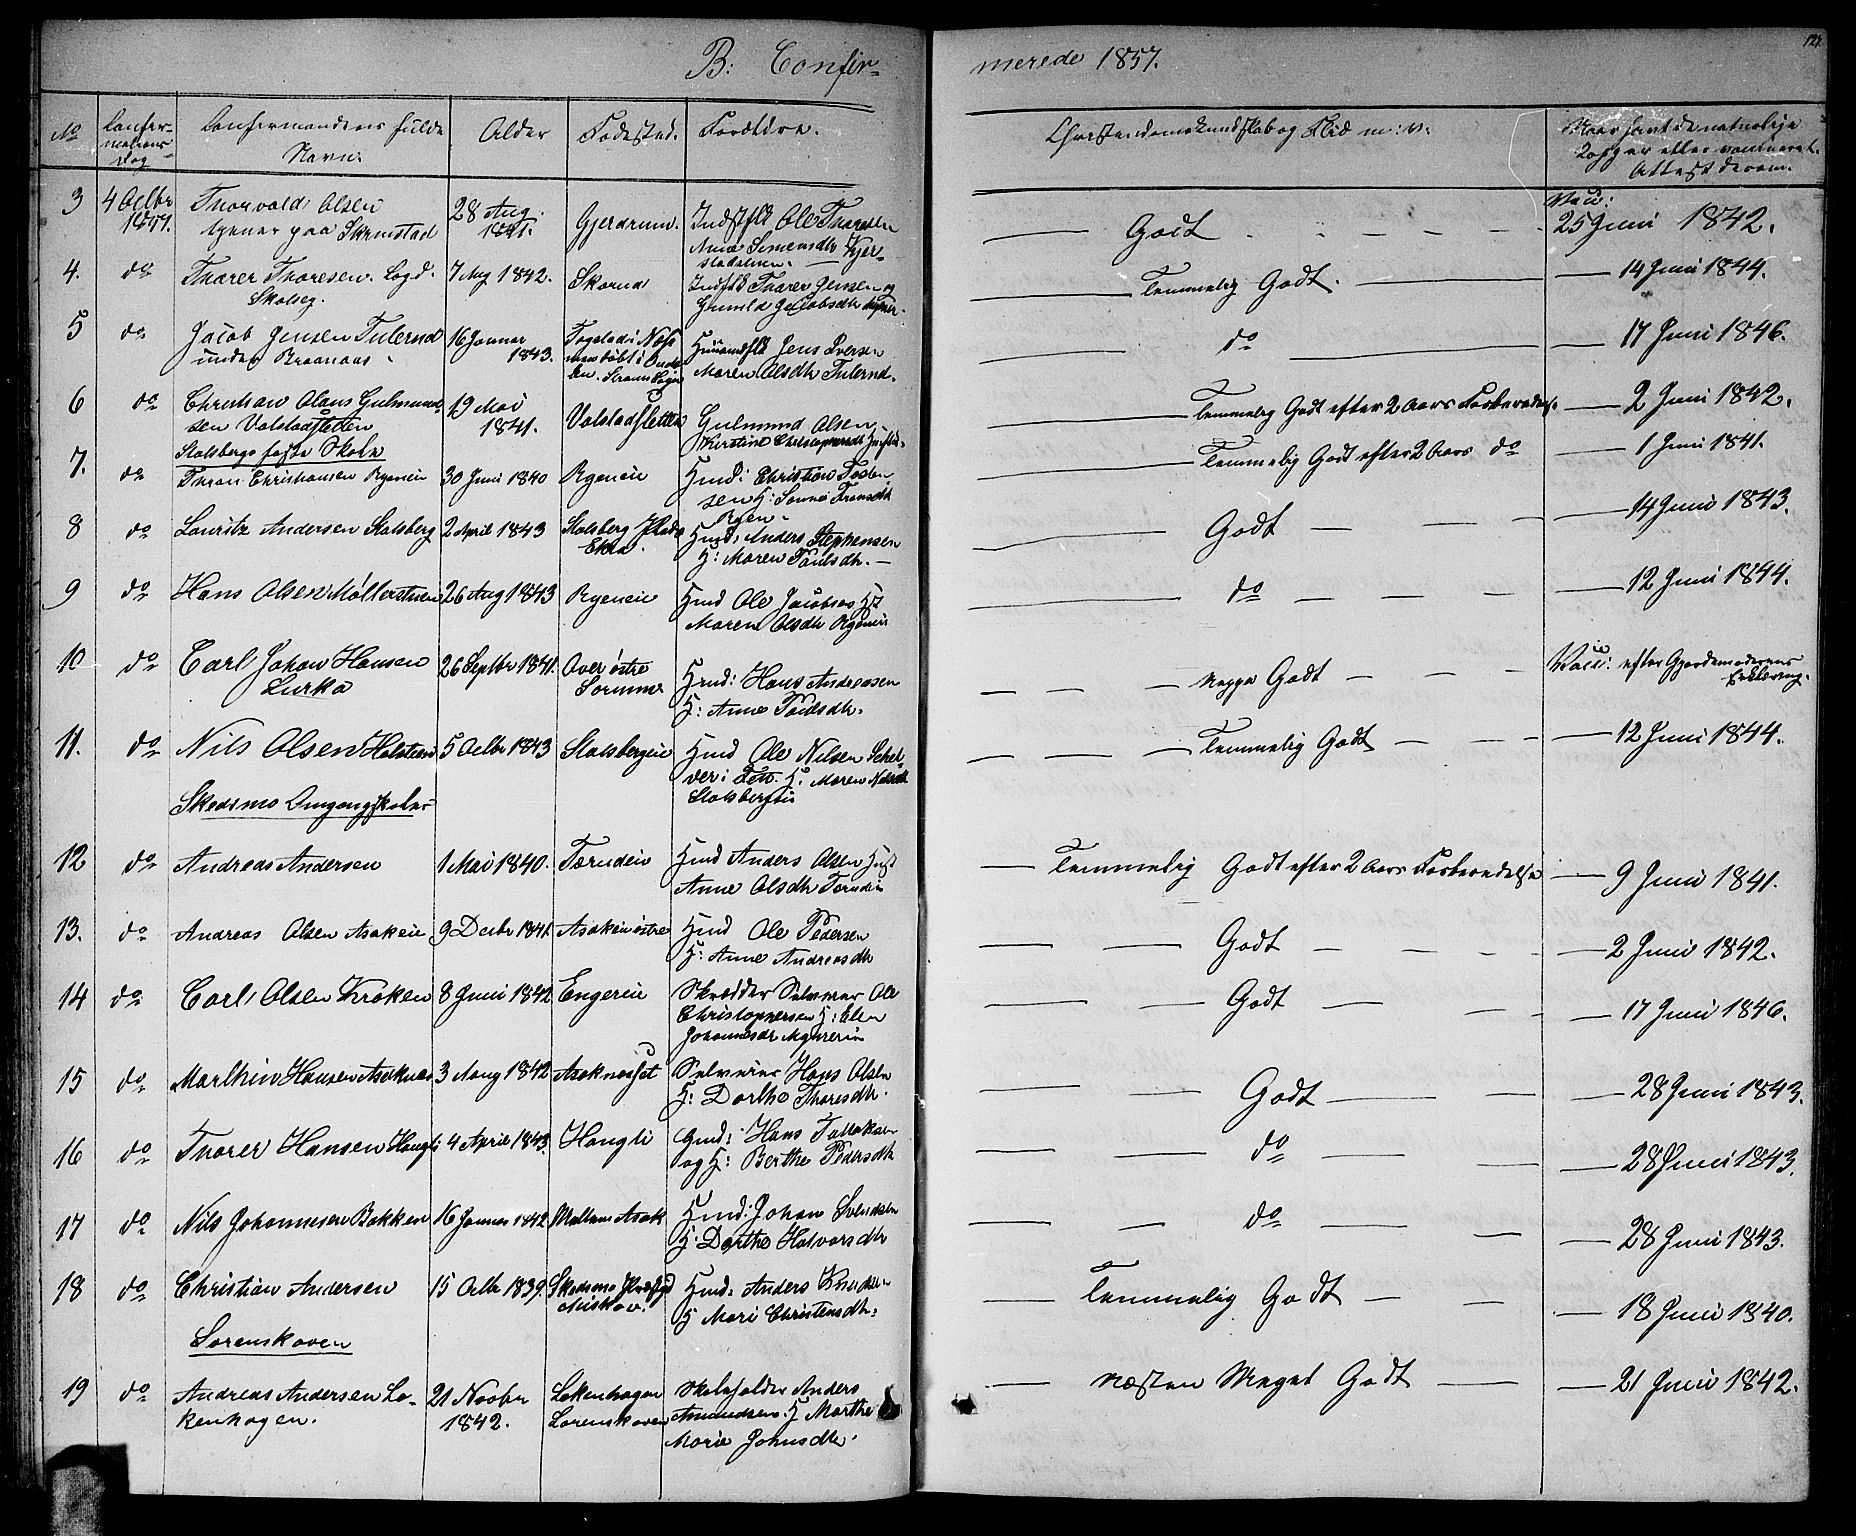 B: Confir-
merede 1857.
No
Confir-
mations
Dag
Confirmandens fulde
Navn.
Alder
Fødested.
Forældre.
Christendomskundskab og Flid m: v:
Naar havt de naturlige
Kopper eller vaccineret.
Attest derom.
3 4 Octbr 1857. Thorvald Olsen
tjener paa Skrimstad
28 Aug. 1841.
Gjerdrum.
Indstflk Ole Thoresen
Anne Simensdtr Kjer-
stadeien.
Godt
Vacc:
25 Juni 1842.
4. do Thorer Thoresen. Logd.
Skolseg.
7 Aug 1842.
Indflk Thorer Jensen og
Gunild Jacobsdtr
Temmelig Godt.
14 Juni 1844.
5 do Jacob Jensen Tulerud
under Braanaas
16 Januar 1843.
Huusmdflk Jens Iversen
Maren Olsdtr Tulerud.
do
17 Juni 1846.
6 do Christian Olaus Gulmund-
sen Valstadsletten
19 Mai 1841.
Valstadsletten
Gulmund Olsen
Kirstine Christophersdtr
Temmelig Godt efter 2 Aars Forberedelse
2 Juni 1842.
Stalsbergs faste Skole
7. do Thron Christiansen Ryeneie
30 Juni 1840
Ryeneie
Hmd: Christian Torder-
sen H:
Ryen
Temmelig Godt efter 2 Aars do
1 Juni 1841.
8 do Lauritz Andersen Stalsberg
2 April 1843
Stalsberg Plads
Ekra.
Hmd: Anders Stephensen
H: Maren Poulsdtr.
Godt
14 Juni 1843.
9 do Hans Olsen Møllerstuen
26 Aug 1843
Ryeneie
Hmd Ole Jacobsen Hst
Maren Olsdtr Ryeneie
do
12 Juni 1844.
10 do Carl Johan Hansen
Lurka
26 Septbr 1841.
Over østre
Sørumne
Hmd: Hans Andreasen
H: Anne Poulsdtr.
neppe Godt
Vacc: efter Gjordemoderens
Erklæring.
11. do Nils Olsen Holsteen
5 Octbr 1843
Stalsbergeie
Hmd Ole Nilsen Schel-
ver: H. Maren
Stalsbergeie
Temmelig Godt
12 Juni 1844.
Skedsmo Omgangsskoler
12 do Andreas Andersen
1 Mai 1840.
Tærudeie
Hmd Anders Olsen Hust
Anne Olsdtr Tærudeie
Temmelig Godt efter 2 Aars Forberedelse
9 Juni 1841.
13. do Andreas Olsen Asakeie
9 Decbr 1841.
Asakeie østre
Hmd Ole Pedersen
H: Anne Andreasdtr
Godt
2 Juni 1842.
14 do Carl Olsen Kroken
8 Juni 1842
Engereie
Skrædder Selveier Ole
Christophersen H: Elen
Johannesdr Myhrereie
Godt
17 Juni 1846.
15 do Marthin Hansen Asaknæs
3 Aaug 1842
Selveier Hans Olsen
H: Dorthe Thoresdtr.
Godt
28 Juni 1843.
16 do Thorer Hansen Haugli
4 April 1843.
Haugli
Gmd: Hans Tollefsen
og H: Berthe Pedersdtr
do
28 Juni 1843.
17 do Nils Johannesen Bakken
16 Januar 1842
Mellem Asak
Hmd: Johan Svendsen
H: Dorthe Halvorsdtr
do
28 Juni 1843.
18 do Christian Andersen
15 Octbr 1839.
Skedsmo Præstgd
Hmd: Anders Knudsen
H Mari Christensdtr.
Temmelig Godt
18 Juni 1840.
Lørenskoven
19 do Andreas Andersen Lø-
kenhagen.
21 Novbr 1842.
Løkenhagen
Lørenskoven
Skoleholder Anders
Amundsen. H Marthe
Marie Johnsdtr.
næsten Meget Godt
21 Juni 1842.